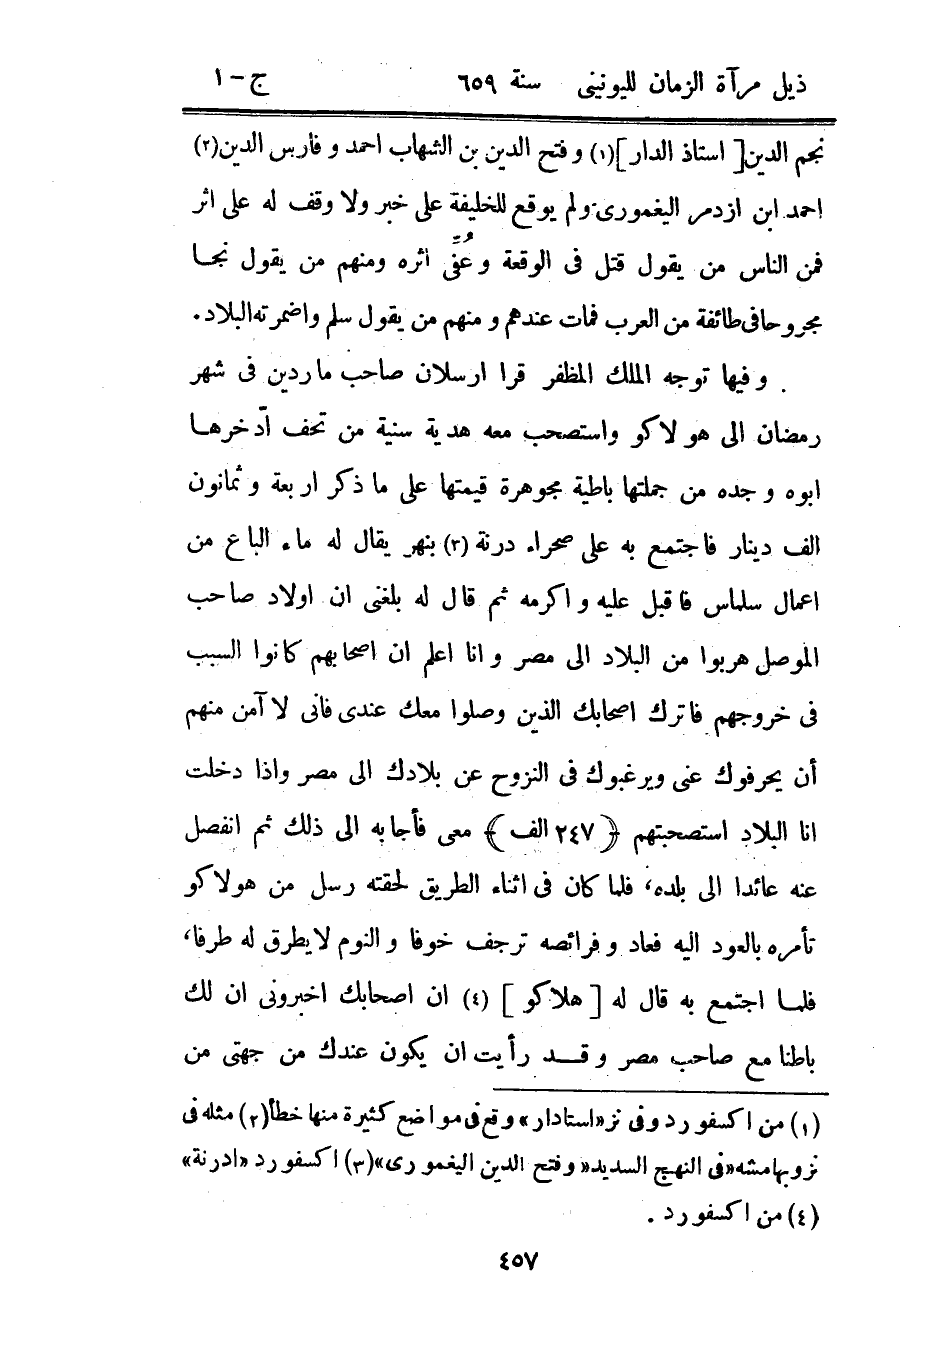 ذيل مرآة الزمان لليونينى سنة ٦٥٩ ج-١
نجم الدين [ استاذ الدار ](١) و فتح الدين بن الشهاب احمد و فارس الدين(٢)
احمد ابن ازدمر اليغمورى ولم يوقع للخليفة على خبر ولا وقف له على اثر
فمن الناس من يقول قتل فى الوقعة و عُفّى اثره ومنهم من يقول نجا
مجروحا فى طائفة من العرب فمات عندهم و منهم من يقول سلم واضمرته البلاد.
و فيها توجه الملك المظفر قرا ارسلان صاحب ماردين فى شهر
رمضان الى هولاكو واستصحب معه هدية سنية من تحف ادّخرها
ابوه وجده من جملتها باطية مجوهرة قيمتها على ما ذكر اربعة و ثمانون
الف دينار فاجتمع به على صحراء درنة (٣) بنهر يقال له ماء الباع من
اعمال سلماس فاقبل عليه و اكرمه ثم قال له بلغنى ان اولاد صاحب
الموصل هربوا من البلاد الى مصر و انا اعلم ان اصحابهم كانوا السبب
فى خروجهم فاترك اصحابك الذين وصلوا معك عندى فانى لا آمن منهم
أن يحرفوك عنى ويرغبوك فى النزوح عن بلادك الى مصر واذا دخلت
انا البلاد استصحبتهم ﴿ ٢٤٧ الف ﴾ معى فأجابه الى ذلك ثم انفصل
عنه عائدا الى بلده، فلما كان فى اثناء الطريق لحقته رسل من هولاكو
تأمره بالعود اليه فعاد و فرائصه ترجف خوفا و النوم لا يطرق له طرفا،
فلما اجتمع به قال له [ هلاكو ] (٤) ان اصحابك اخبرونى ان لك
باطنا مع صاحب مصر و قد رأيت ان يكون عندك من جهتى من
(١) من اكسفورد وفى نز «استادار» وقع فى مواضع كثيرة منها خطأ (٢) مثله فى
نز وبهامشه «فى النهج السديد» وفتح الدين اليغمورى» (٣) اكسفورد «ادرنة»
(٤) من اكسفورد .
٤٥٧